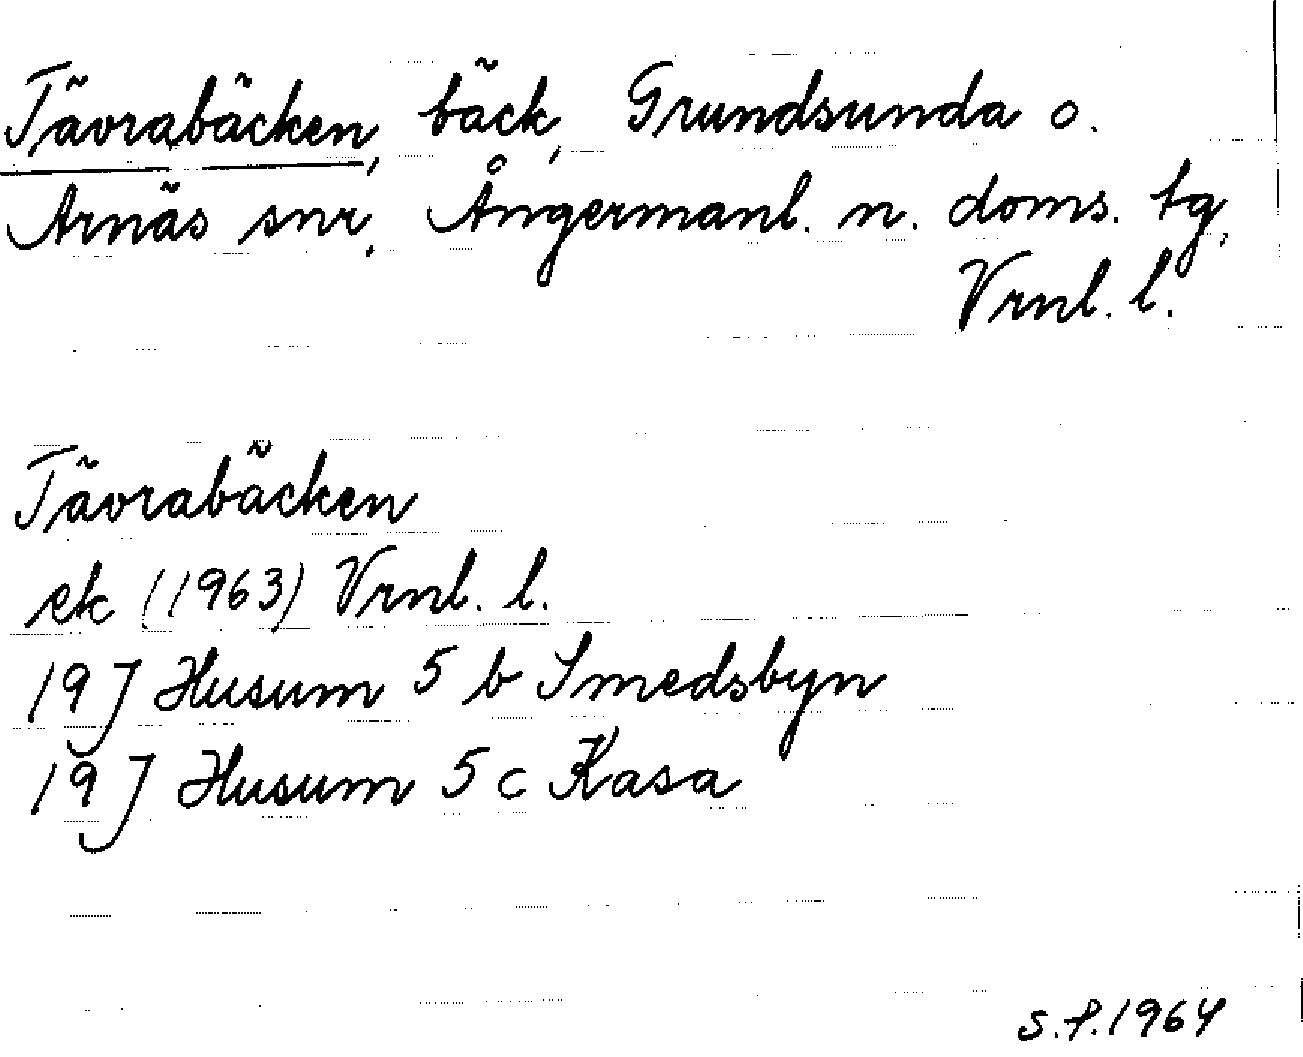 Tävrabäcken, bäck, Grundsunda o.
Arnäs snr, Ångermanl. n. doms. tg,
Vrnl. l.
Tävrabäcken
ek (1963) Vrnl. l.
19 J Husum 5 b Smedsbyn
19 J Husum 5 c Kasa
S.P. 1964